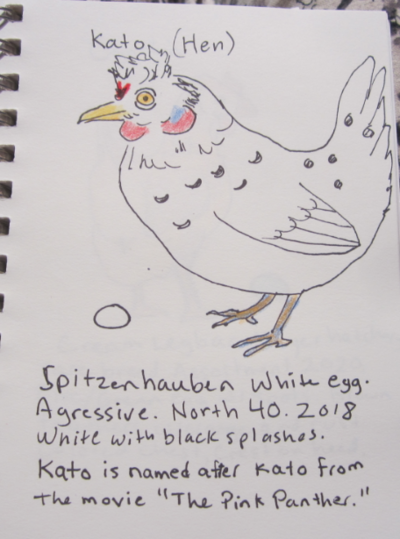 Kato (Hen)
Spitzenhauben White egg.
Agressive. North 40. 2018
White with black splashes.
Kato is named after Kato from
the movie "The Pink Panther."